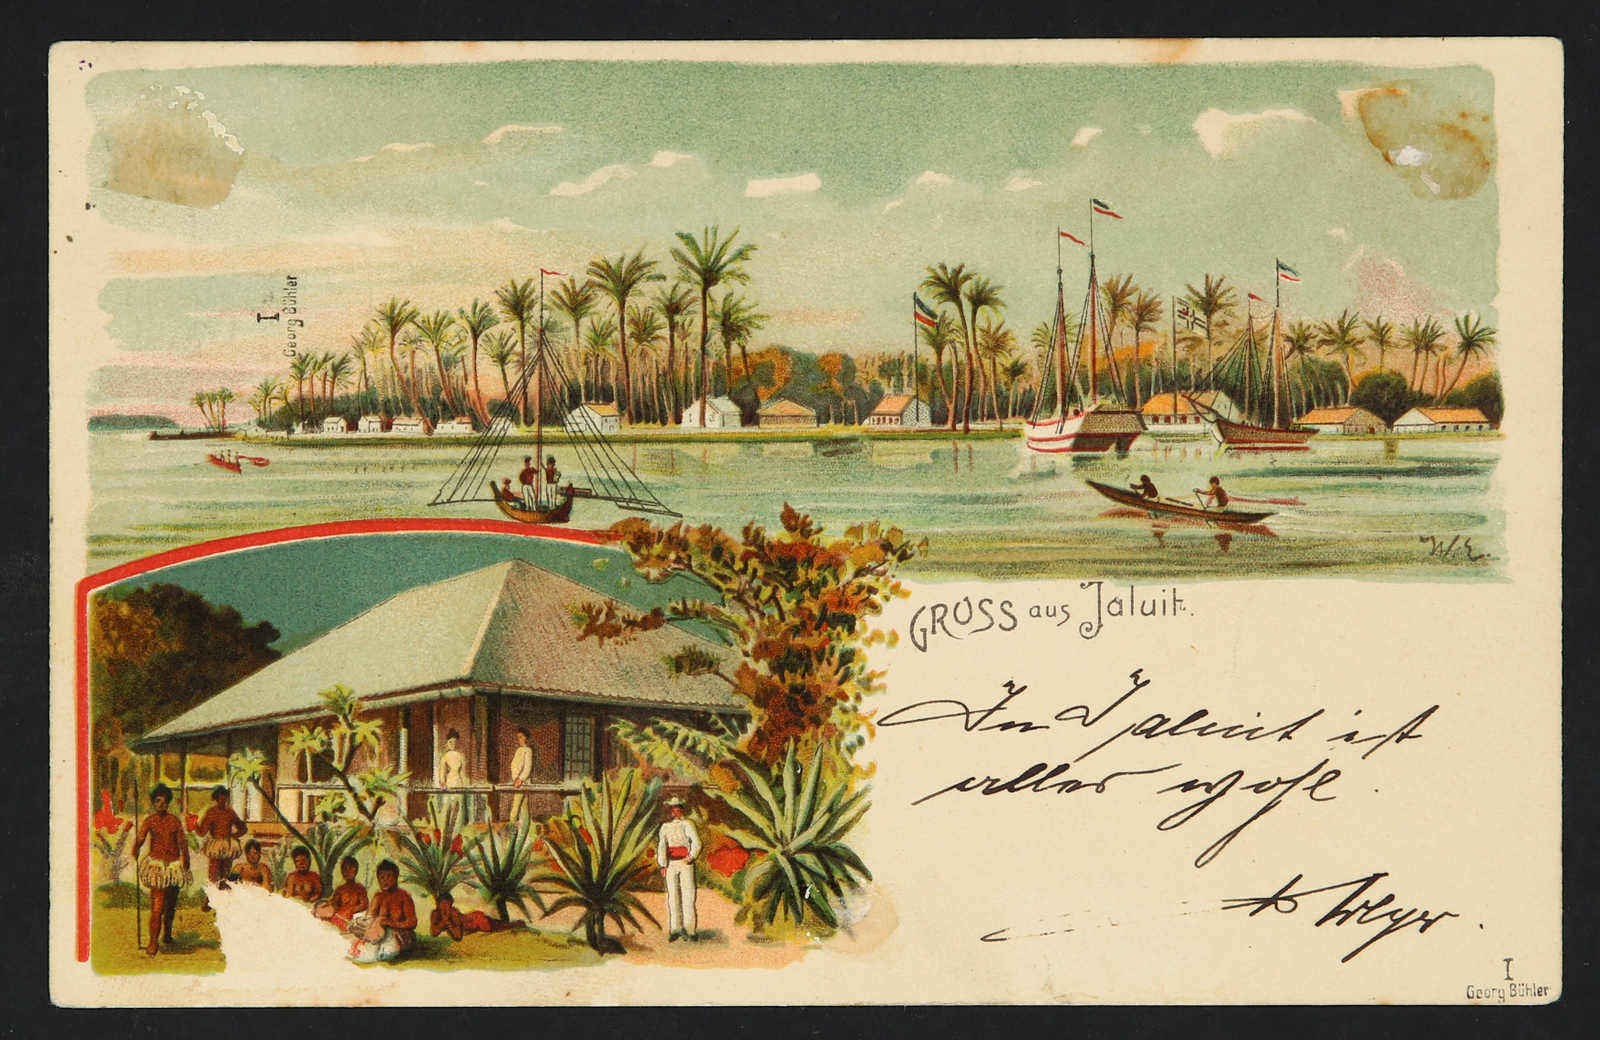 I
Georg Bühler
W. E.
GRUSS aus Jaluit.
In Jaluit ist
alles wohl.
I
Georg Bühler